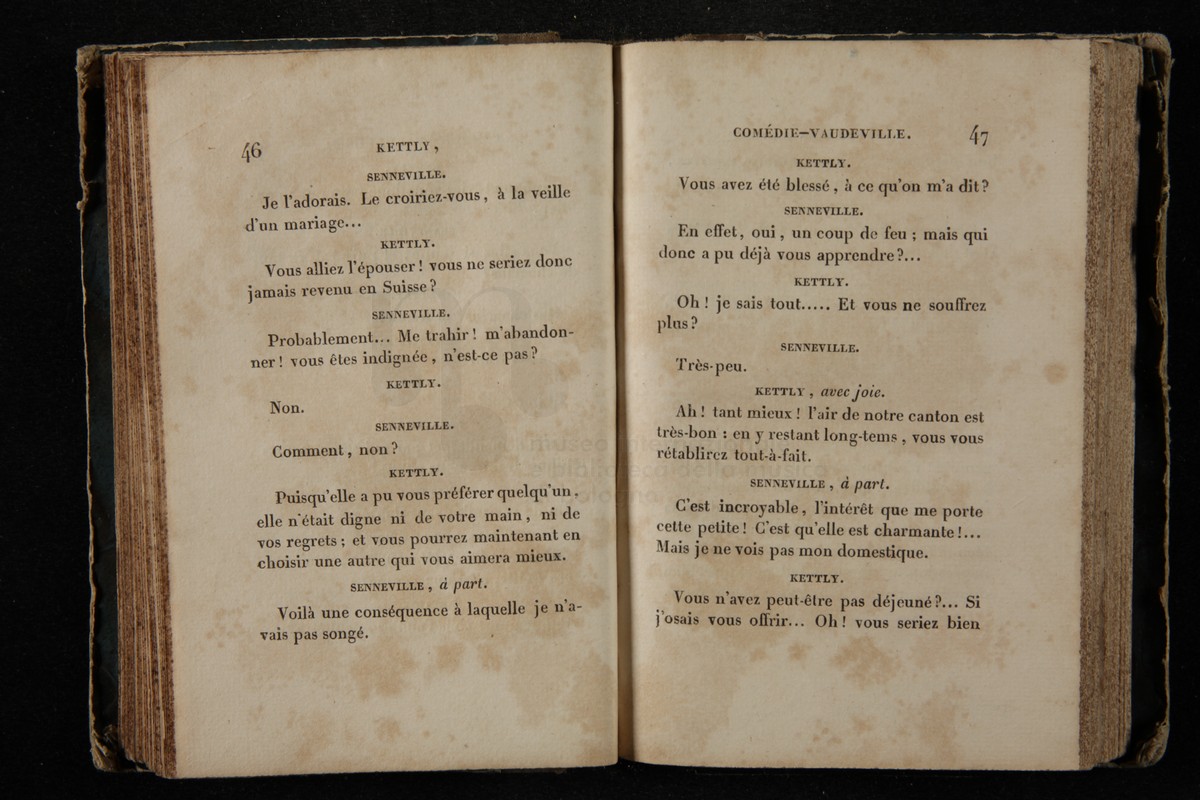 46
KETTLY,
SENNEVILLE.
Je l'adorais. Le croiriez-vous, à la veille
d'un mariage...
KETTLY.
Vous alliez l'épouser ! vous ne seriez donc
jamais revenu en Suisse ?
SENNEVILLE.
Probablement... Me trahir ! m'abandon-
ner ! vous êtes indignée, n'est-ce pas ?
KETTLY.
Non.
SENNEVILLE.
Comment, non ?
KETTLY.
Puisqu'elle a pu vous préférer quelqu'un,
elle n'était digne ni de votre main, ni de
vos regrets ; et vous pourrez maintenant en
choisir une autre qui vous aimera mieux.
SENNEVILLE, à part.
Voilà une conséquence à laquelle je n'a-
vais pas songé.
COMÉDIE-VAUDEVILLE.
47
KETTLY.
Vous avez été blessé, à ce qu'on m'a dit ?
SENNEVILLE.
En effet, oui, un coup de feu ; mais qui
donc a pu déjà vous apprendre ?...
KETTLY.
Oh ! je sais tout..... Et vous ne souffrez
plus ?
SENNEVILLE.
Très-peu.
KETTLY, avec joie.
Ah ! tant mieux ! l'air de notre canton est
très-bon : en y restant long-tems, vous vous
rétablirez tout-à-fait.
SENNEVILLE, à part.
C'est incroyable, l'intérêt que me porte
cette petite ! C'est qu'elle est charmante !...
Mais je ne vois pas mon domestique.
KETTLY.
Vous n'avez peut-être pas déjeuné ?... Si
j'osais vous offrir... Oh ! vous seriez bien
museo
biblioteca della musica
bologna